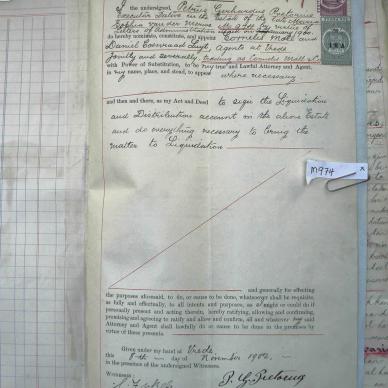 I the undersigned, Petrus Gerhardus Pretorius
Executor Dative in the Estate of the late Maria
Sophia van der Merwe by virtue of
Letters of Administration 1902.
do hereby nominate, constitute, and appoint Cornelis Möll and
Daniel Coenraad Luyt, Agents at Vrede
jointly and severally, trading as Cornelis Möll & Co
with Power of Substitution, to be my true and Lawful Attorney and Agent,
in my name, place, and stead, to appear where necessary
and then and there, as my Act and Deed to sign the Liquidation
and Distribution account in the above Estate
and do everything necessary to bring the
matter to Liquidation.
M974
and generally for effecting
the purposes aforesaid, to do, or cause to be done, whatsoever shall be requisite,
as fully and effectually, to all intents and purposes, as I might or could do if
personally present and acting therein, hereby ratifying, allowing and confirming,
promising and agreeing to ratify and allow and confirm, all and whatever my said
Attorney and Agent shall lawfully do or cause to be done in the premises by
virtue of these presents.
Given under my hand at Vrede
this 8th day of November 1902,
in the presence of the undersigned Witnesses.
Witnesses:
P. G. Pretorius